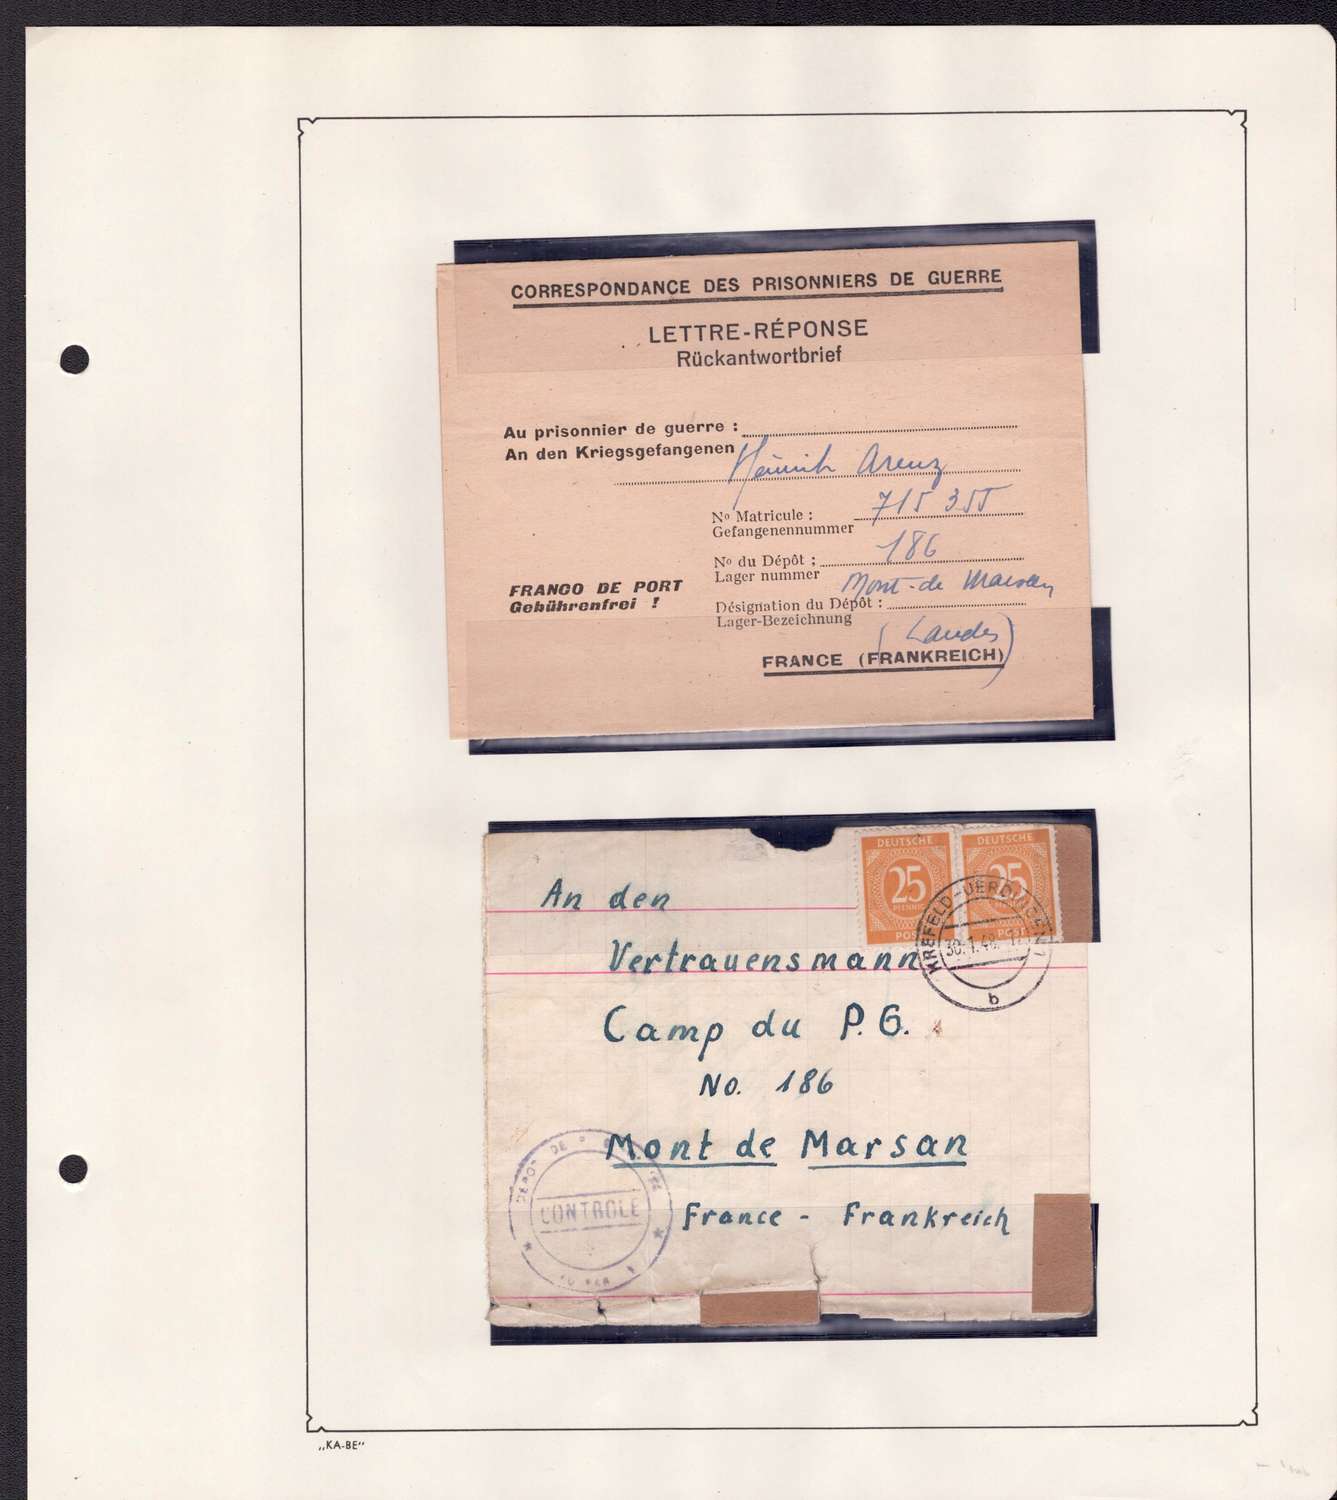 CORRESPONDANCE DES PRISONNIERS DE GUERRE
LETTRE-RÉPONSE
Rückantwortbrief
Au prisonnier de guerre :
An den Kriegsgefangenen
Heinrich Arenz
No Matricule : 715 355
Gefangenennummer
No du Dépôt : 186
Lager nummer
Mont-de Marsan
FRANCO DE PORT
Gebührenfrei !
Désignation du Dépôt :
Lager-Bezeichnung
(Landes)
FRANCE (FRANKREICH)
DEUTSCHE
25
PFENNIG
POST
DEUTSCHE
25
POST
KREFELD-UERDINGEN 1
30.1.48
b
An den
Vertrauensmann
Camp du P.G.
No. 186
Mont de Marsan
France - Frankreich
DÉPÔT DE
CONTROLE
„KA-BE"